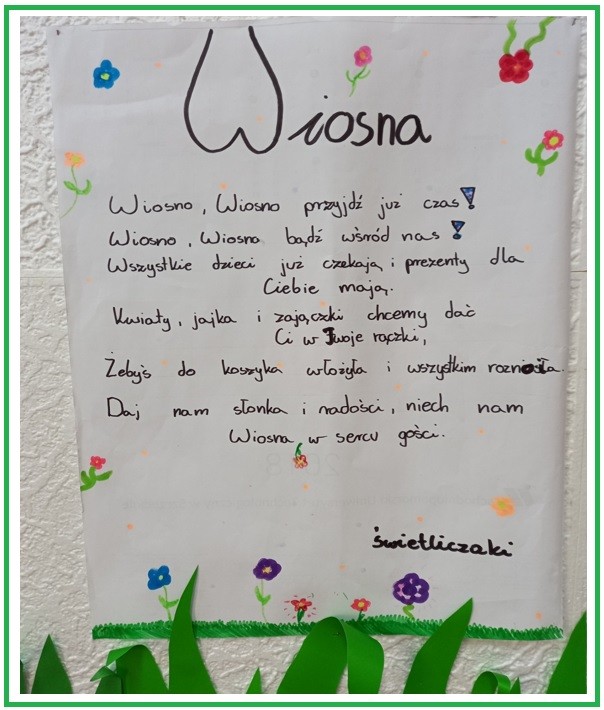 Wiosna
Wiosno, Wiosno przyjdź już czas!
Wiosno, Wiosno bądź wśród nas!
Wszystkie dzieci już czekają i prezenty dla
Ciebie mają.
Kwiaty, jajka i zajączki chcemy dać
Ci w Twoje rączki,
Żebyś do koszyka włożyła i wszystkim rozniosła.
Daj nam słonka i radości, niech nam
Wiosna w sercu gości.
świetliczaki